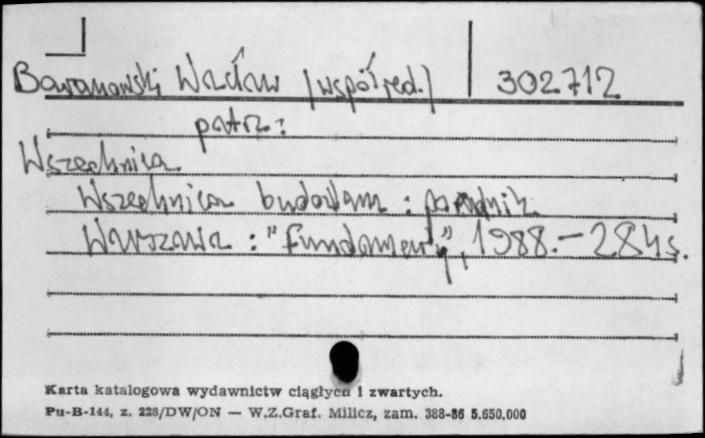 Baranowski Wacław (współred.) 302712
patrz:
Wszechnica
Wszechnica budowlana : poradnik
Warszawa : "Fundament", 1988. - 284 s.
Karta katalogowa wydawnictw ciągłych i zwartych.
Pu-B-144, z. 228/DW/ON — W.Z.Graf. Milicz, zam. 388-86 5.650.000